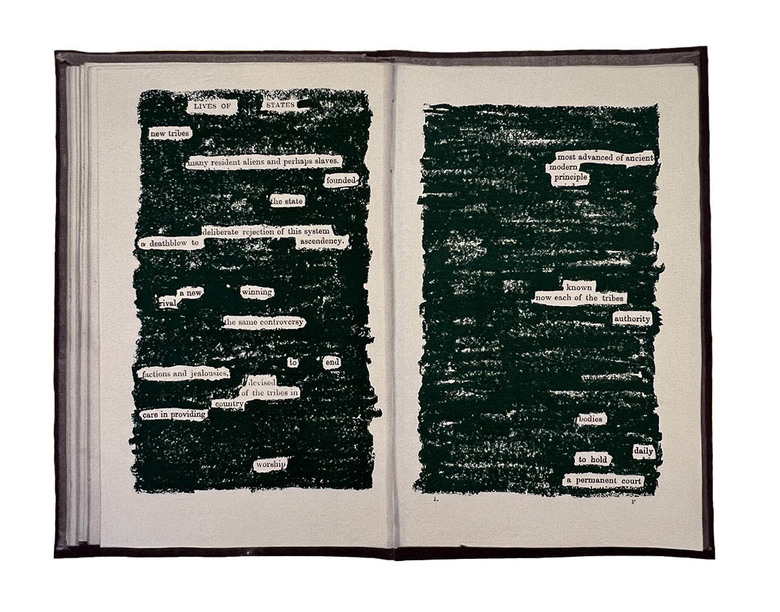 LIVES OF STATES
new tribes
many resident aliens and perhaps slaves.
founded
the state
deliberate rejection of this system
a deathblow to ascendency.
a new winning
rival
the same controversy
to end
factions and jealousies,
devised
of the tribes in
country
care in providing
worship
most advanced of ancient
modern
principle
known
now each of the tribes
authority
bodies
daily
to hold
a permanent court
L F